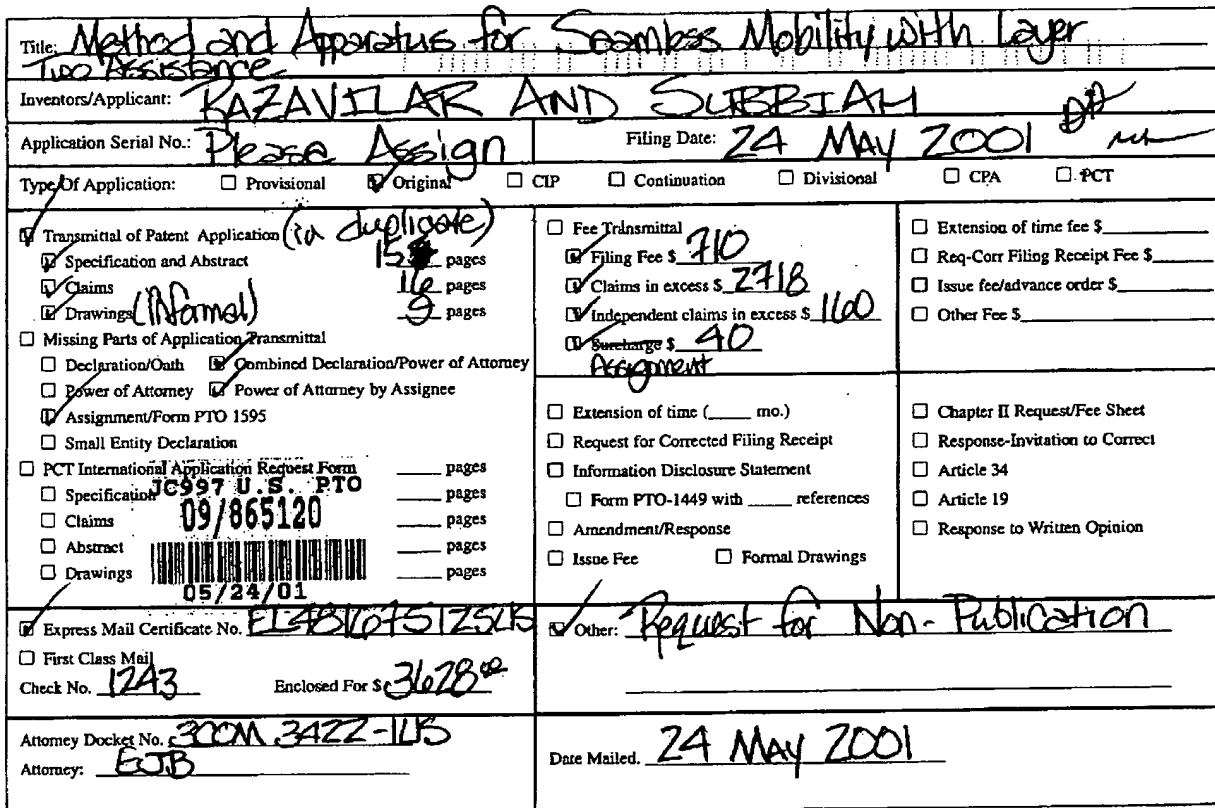 Title: Method and Apparatus for Seamless Mobility with Layer
Two Assistance
Inventors/Applicant: RAZAVILAR AND SUBBIAH
Application Serial No.: Please Assign Filing Date: 24 MAY 2001
Type Of Application: ☐ Provisional ☑ Original ☐ CIP ☐ Continuation ☐ Divisional ☐ CPA ☐ PCT
☑ Transmittal of Patent Application (in duplicate)
☑ Specification and Abstract 15 pages
☑ Claims 16 pages
☑ Drawings (INformal) 9 pages
☐ Missing Parts of Application Transmittal
☐ Declaration/Oath ☑ Combined Declaration/Power of Attorney
☐ Power of Attorney ☑ Power of Attorney by Assignee
☑ Assignment/Form PTO 1595
☐ Small Entity Declaration
☐ PCT International Application Request Form ____ pages
☐ Specification ____ pages
☐ Claims ____ pages
☐ Abstract ____ pages
☐ Drawings ____ pages
JC997 U.S. PTO
09/865120
05/24/01
☐ Fee Transmittal
☑ Filing Fee $ 710
☑ Claims in excess $ 2718
☑ Independent claims in excess $ 160
☑ Surcharge $ 40
Assignment
☐ Extension of time (____ mo.)
☐ Request for Corrected Filing Receipt
☐ Information Disclosure Statement
☐ Form PTO-1449 with ____ references
☐ Amendment/Response
☐ Issue Fee ☐ Formal Drawings
☐ Extension of time fee $
☐ Req-Corr Filing Receipt Fee $
☐ Issue fee/advance order $
☐ Other Fee $
☐ Chapter II Request/Fee Sheet
☐ Response-Invitation to Correct
☐ Article 34
☐ Article 19
☐ Response to Written Opinion
☑ Express Mail Certificate No. EL481675125US
☐ First Class Mail
Check No. 1243 Enclosed For $ 3628.00
☑ Other: Request for Non-Publication
Attorney Docket No. 3COM 3422-1US
Attorney: EJB
Date Mailed. 24 MAY 2001